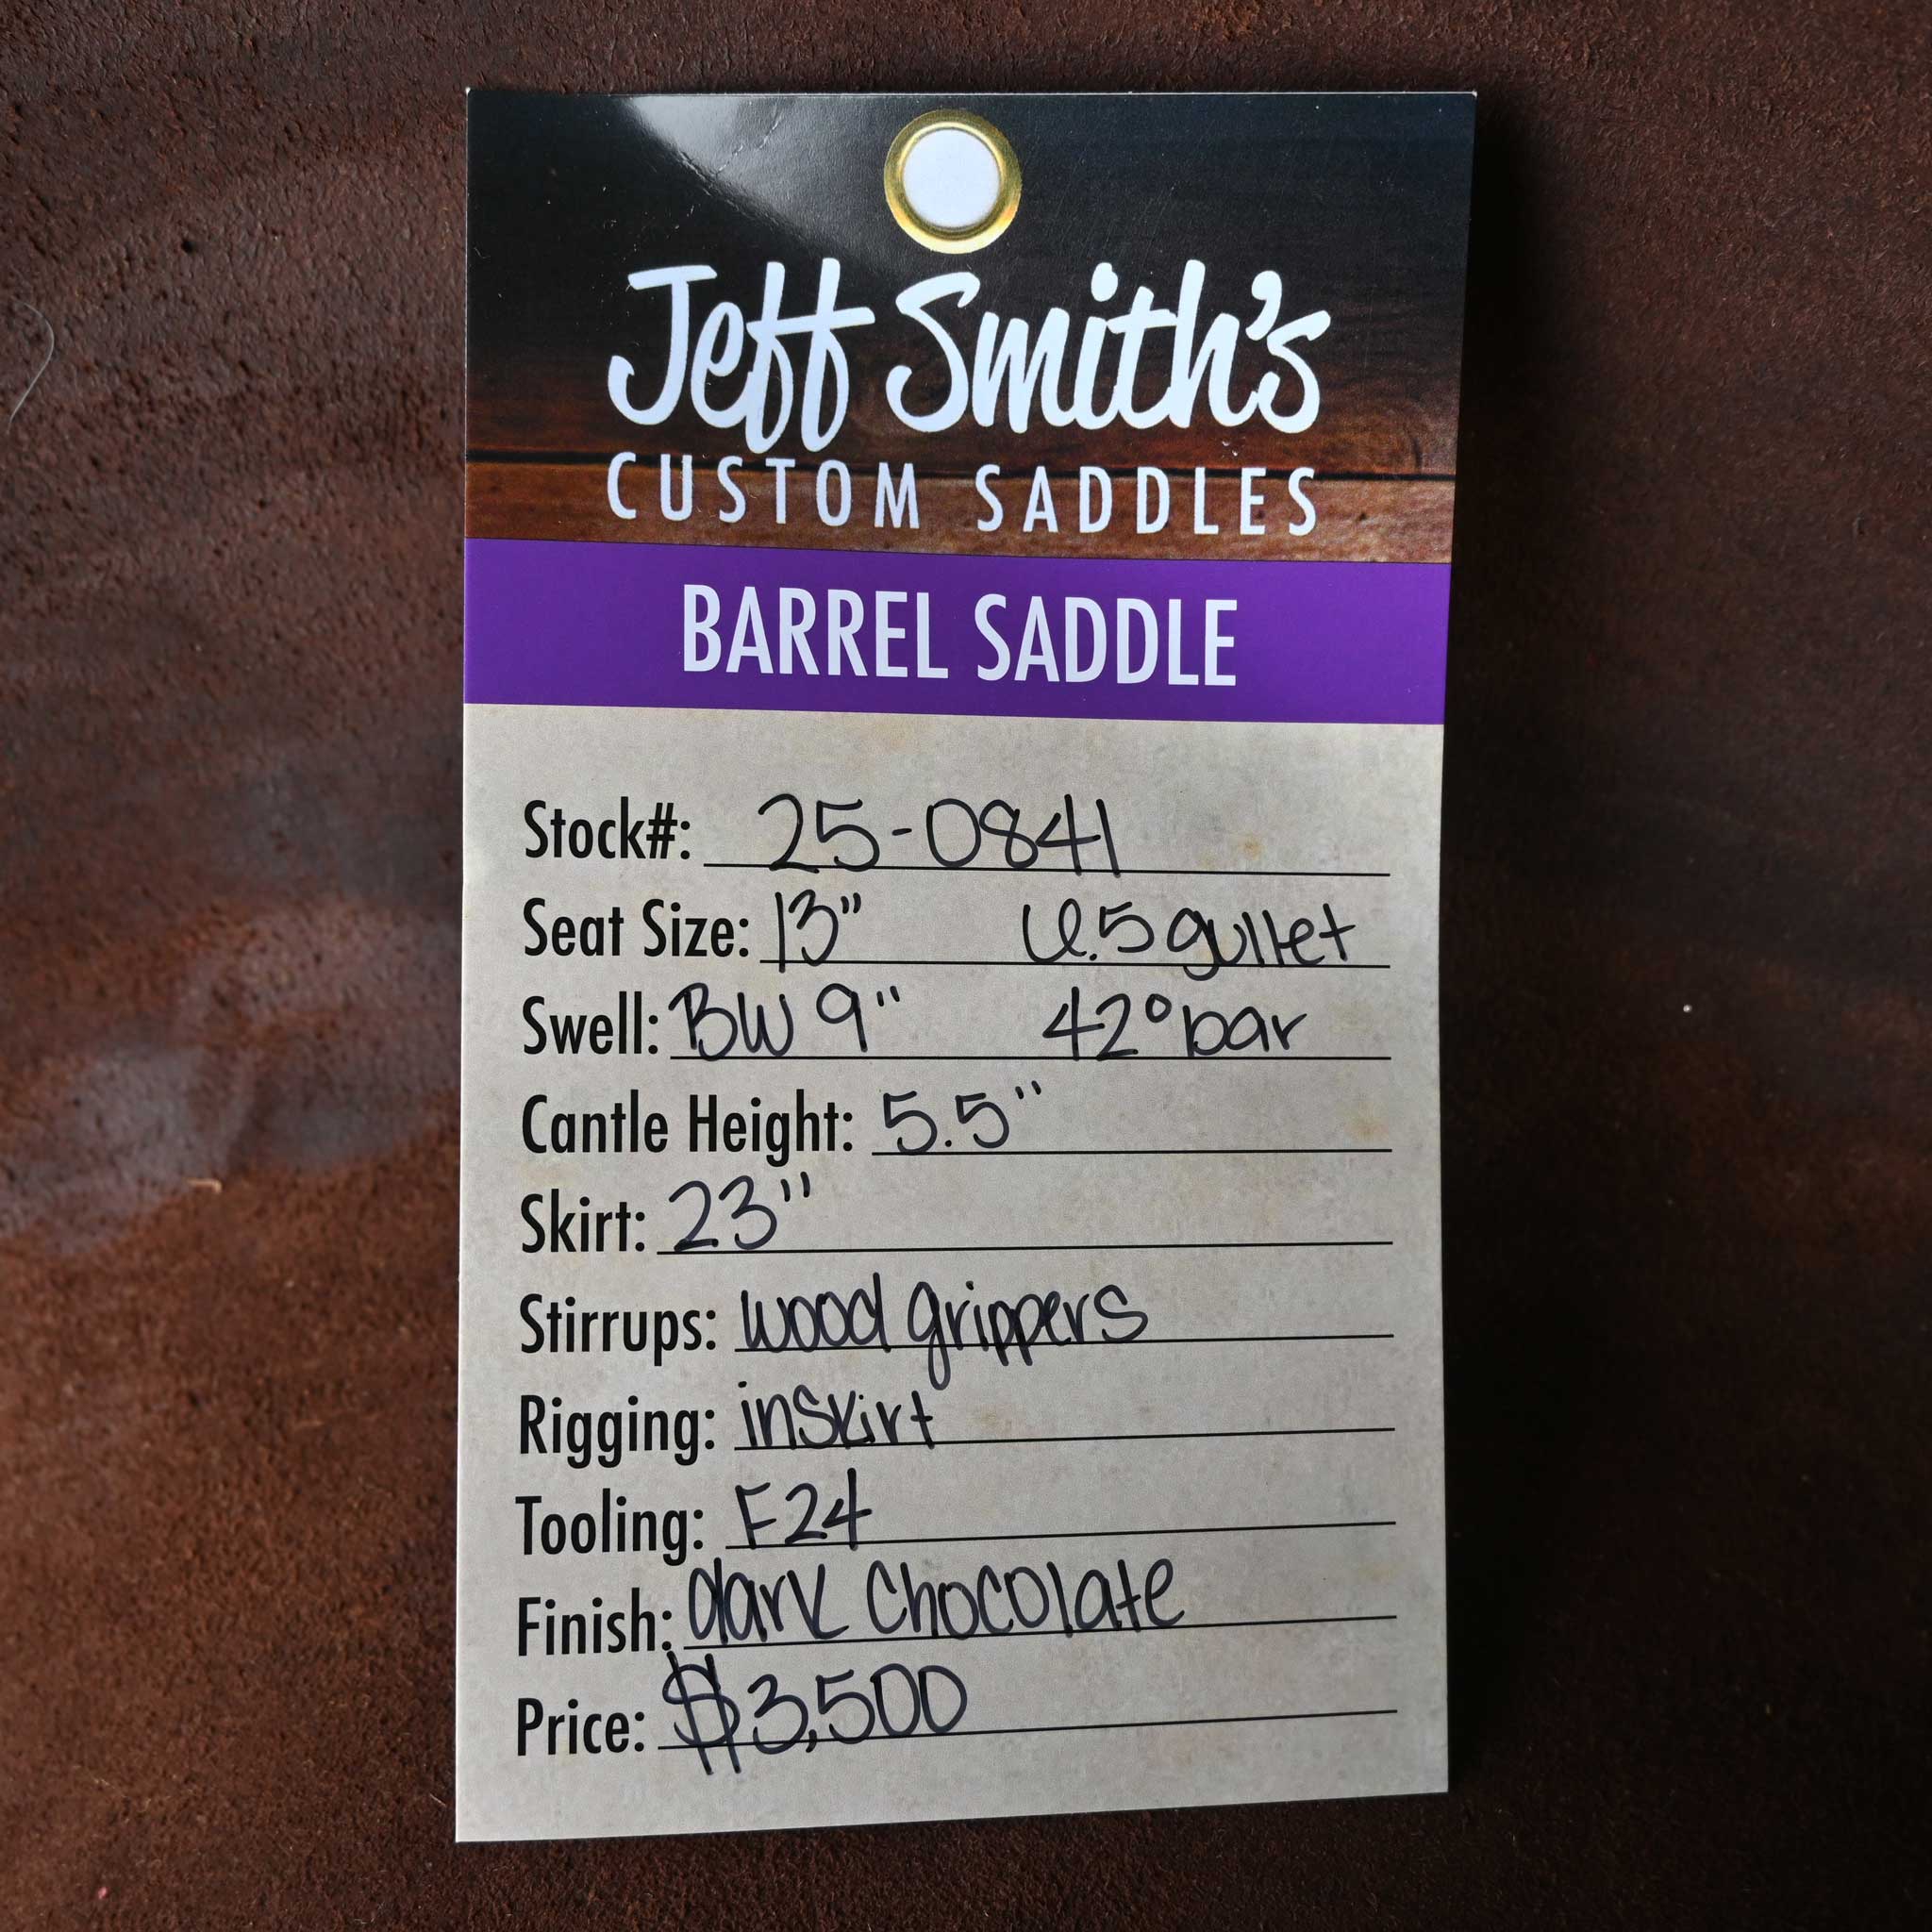 Jeff Smith's
CUSTOM SADDLES
BARREL SADDLE
Stock#: 25-0841
Seat Size: 13" 6.5 gullet
Swell: BW 9" 42° bar
Cantle Height: 5.5"
Skirt: 23"
Stirrups: wood grippers
Rigging: inskirt
Tooling: F24
Finish: dark chocolate
Price: $3,500